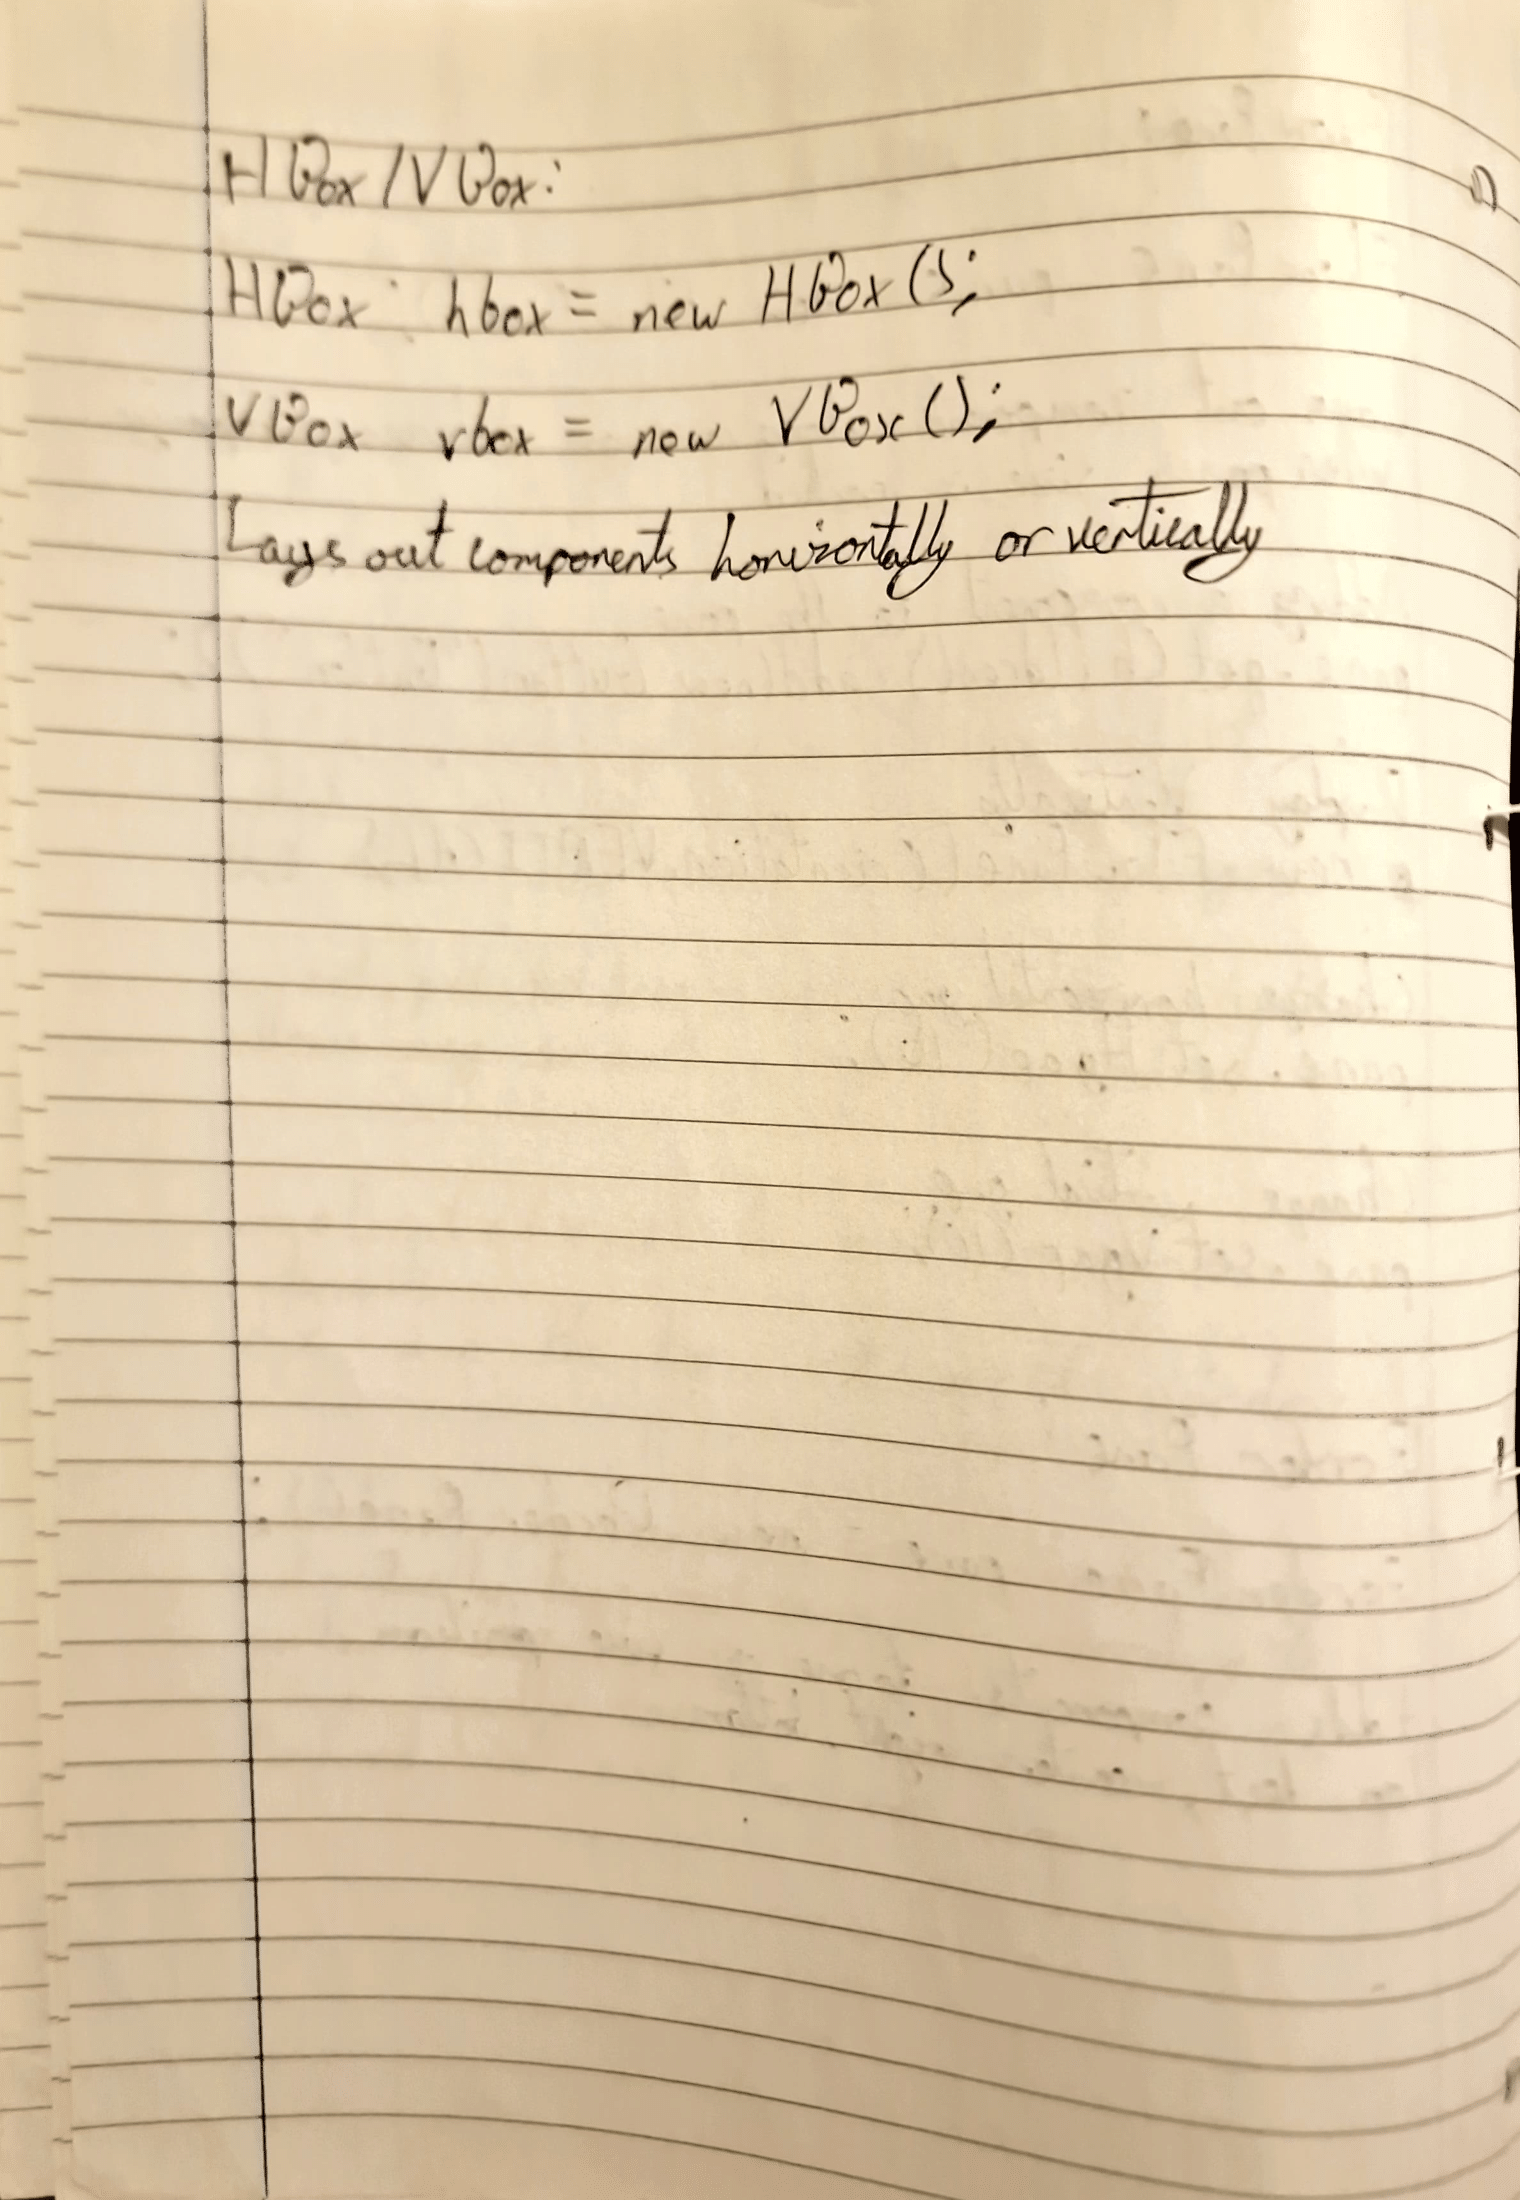 HBox/VBox:
HBox hbox = new HBox();
VBox vbox = new VBox();
Lays out components horizontally or vertically